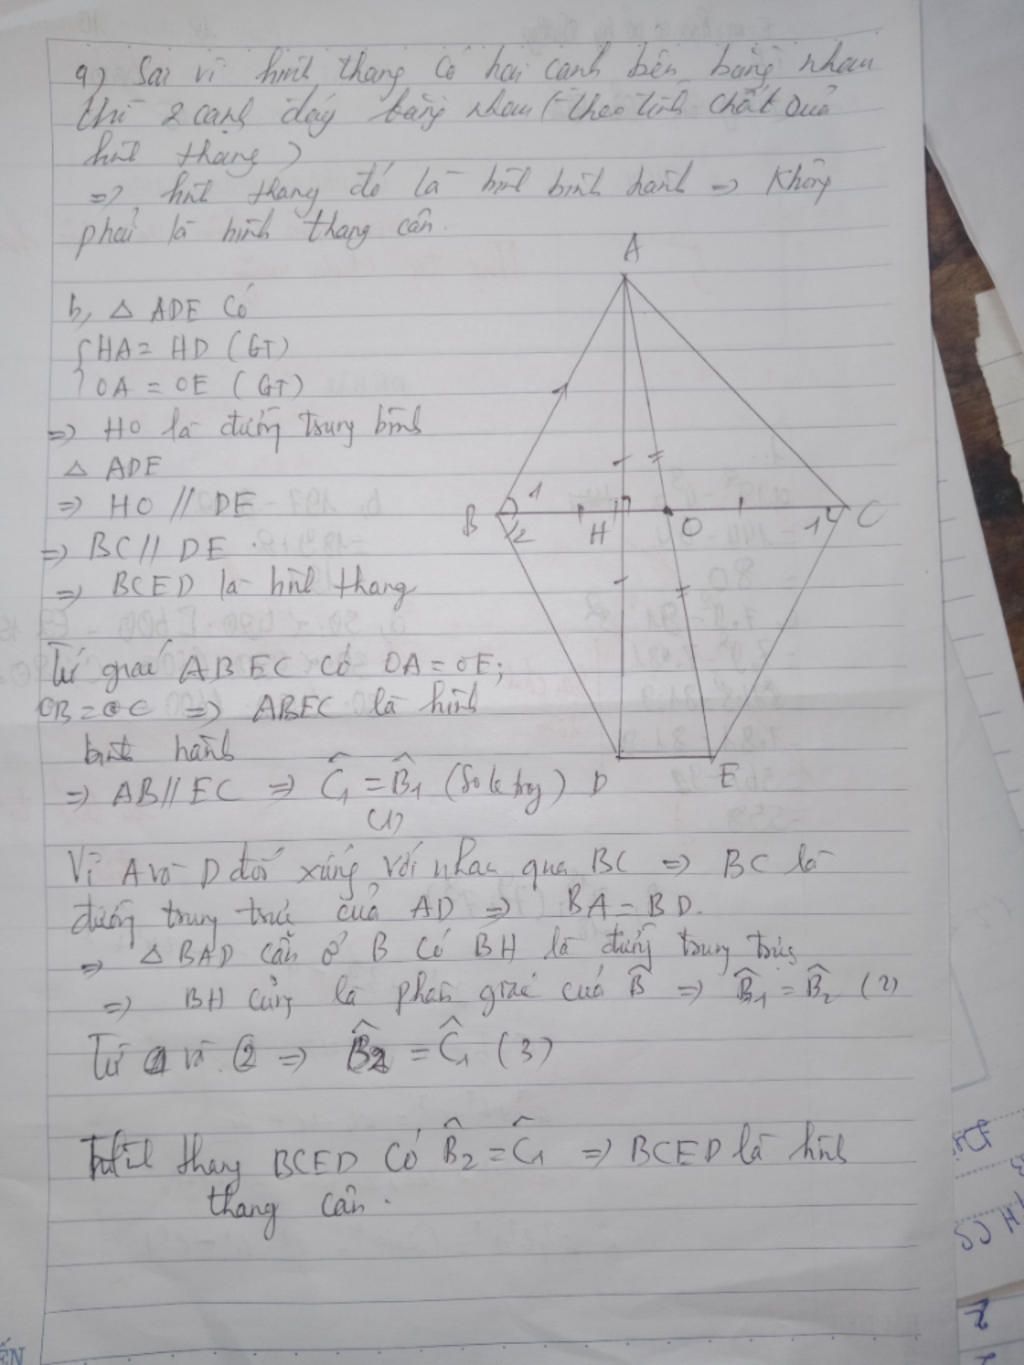 a, Sai vì hình thang có hai cạnh bên bằng nhau
thì 2 cạnh đáy bằng nhau (theo tính chất của
hình thang)
=> hình thang đó là hình bình hành => Không
phải là hình thang cân.
A
b, △ ADE Có
HA = HD (GT)
OA = OE (GT)
=> HO là đường trung bình
△ ADE
=> HO // DE
B 1 2 H O 1 C
=> BC // DE.
=> BCED là hình thang
Tứ giác ABEC Có OA = OE;
OB = OC => ABEC là hình
bình hành
=> AB // EC => Ĉ1 = B̂1 (So le trg)
D E
(1)
Vì A và D đối xứng với nhau qua BC => BC là
đường trung trực của AD => BA = BD.
=> △ BAD cân ở B Có BH là đường trung trực
=> BH cũng là phân giác của B̂ => B̂1 = B̂2 (2)
Từ 1 và 2 => B̂2 = Ĉ1 (3)
Hình thang BCED Có B̂2 = Ĉ1 => BCED là hình
thang cân.